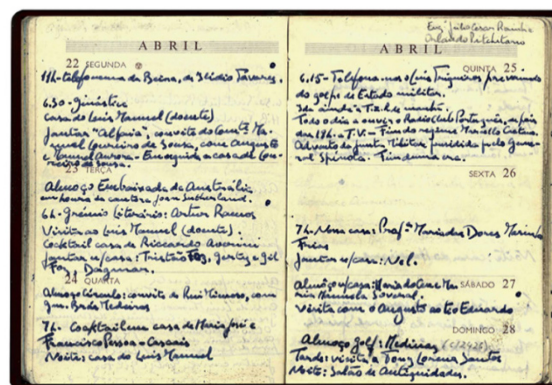 ABRIL
22 SEGUNDA
11h - telefonema da Beira, de Elidio Tavares.
6.30 - Ginástica
Casa do Luis Manuel (doente)
Jantar "Alfaia", convite do Com.te Ma-
nuel Loureiro de Sousa, com Augusto
e Manuel Aurora - Em seguida a casa de Lou-
reiro de Sousa.
23 TERÇA
Almoço Embaixada da Austrália
em honra da cantora Joan Sutherland.
6h. Grémio Literário: Artur Ramos
Visita ao Luis Manuel (doente).
Cocktail casa de Riccardo
Jantar n/casa: Tristão Foz, e Gil
Foz, Dagmar.
24 QUARTA
Almoço Círculo: convite de Rui com
Medeiros
7h. Cocktail em casa de Maria José e
Francisco Pessoa - Cascais
Noite: casa do Luis Manuel
ABRIL
QUINTA 25
6.15 - Telefona-nos o Luis Trigueiros prevenindo
do golpe de Estado militar.
da manhã.
Todo o dia a ouvir o Radio Club Português, e depois
das 19h - T.V. - Fim do regime Marcello Caetano.
Advento da Junta Militar, presidida pelo Gene-
ral Spínola. Fim duma era.
SEXTA 26
7h. Nossa casa: Prof.ª Maria das Dores Marinho
Jantar n/casa: Vol.
SÁBADO 27
Almoço n/casa: Maria do Ana Ma-
ria Manuela Soveral,
Visita com o Augusto ao tio Eduardo
DOMINGO 28
Almoço Golf: Medeiros
Tarde: visita a Tony Lorena Santos
Noite: Salão de Antiguidades.